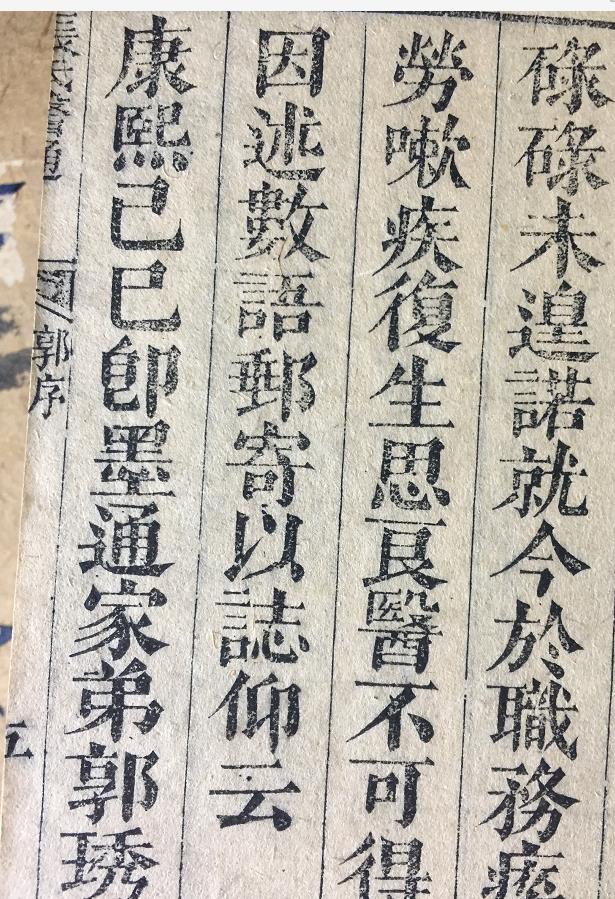 碌碌未遑諾就今於職務
勞嗽疾復生思良醫不可得
因述數語郵寄以誌仰云
康熙己巳卽墨通家弟郭琇
張氏醫通
郭序
五